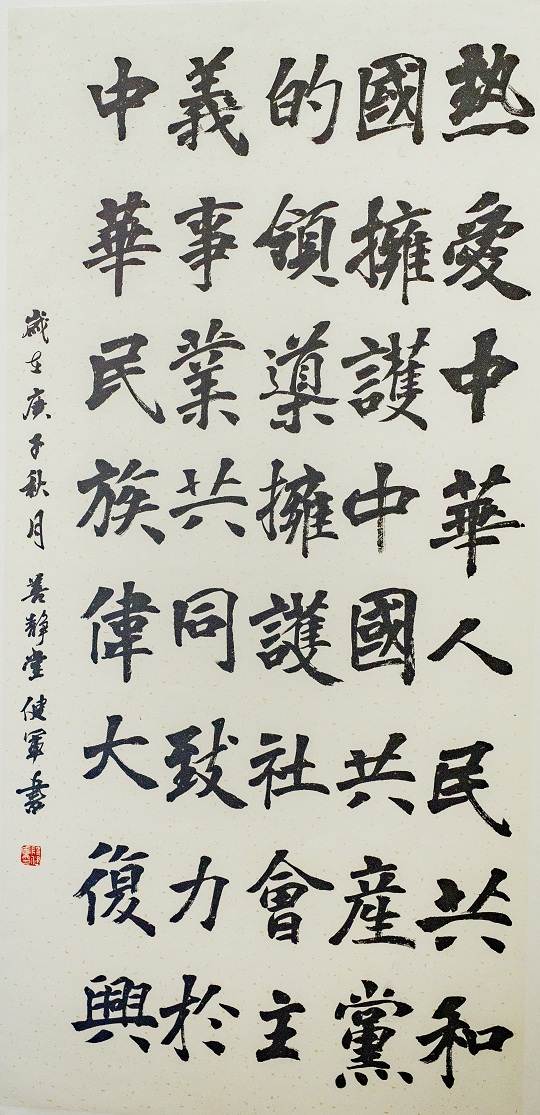 熱愛中華人民共和
國擁護中國共產黨
的領導擁護社會主
義事業共同致力於
中華民族偉大復興
歲在庚子秋月善靜堂健軍書